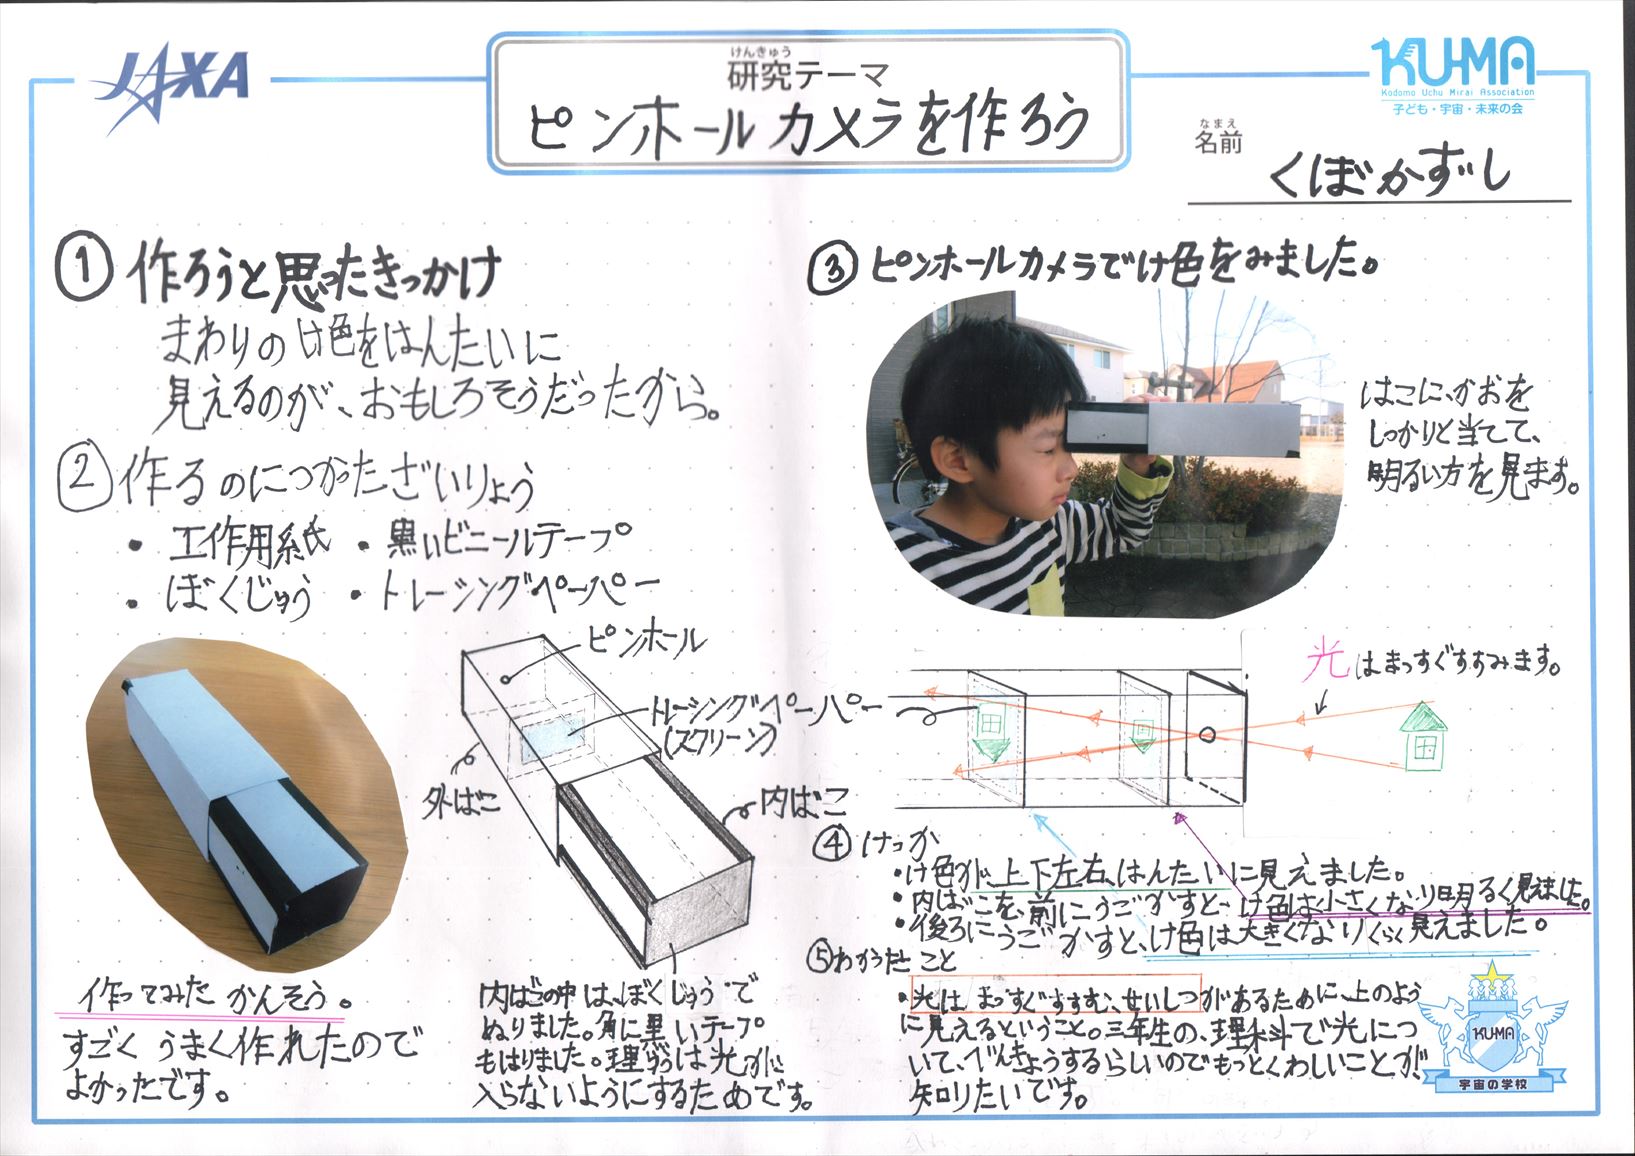 JAXA
けんきゅう
研究テーマ
ピンホールカメラを作ろう
KU-MA
Kodomo Uchu Mirai Association
子ども・宇宙・未来の会
なまえ
名前
くぼかずし
① 作ろうと思ったきっかけ
まわりのけ色をはんたいに
見えるのが、おもしろそうだったから。
② 作るのにつかったざいりょう
・工作用紙 ・黒いビニールテープ
・ぼくじゅう ・トレーシングペーパー
ピンホール
トレーシングペーパー
(スクリーン)
外ばこ
内ばこ
作ってみたかんそう。
すごくうまく作れたので
よかったです。
内ばこの中は、ぼくじゅうで
ぬりました。角に黒いテープ
もはりました。理由は光が
入らないようにするためです。
③ ピンホールカメラでけ色をみました。
はこに、かおを
しっかりと当てて、
明るい方を見ます。
光はまっすぐすすみます。
④ けっか
・け色が、上下左右、はんたいに見えました。
・内ばこを、前にうごかすと、け色は小さくなり明るく見えました。
・後ろにうごかすと、け色は大きくなりくらく見えました。
⑤ わかったこと
・光は、まっすぐすすむ、せいしつがあるために、上のよう
に見えるということ。三年生の、理科で光につ
いて、べんきょうするらしいのでもっとくわしいことが、
知りたいです。
KU-MA
宇宙の学校